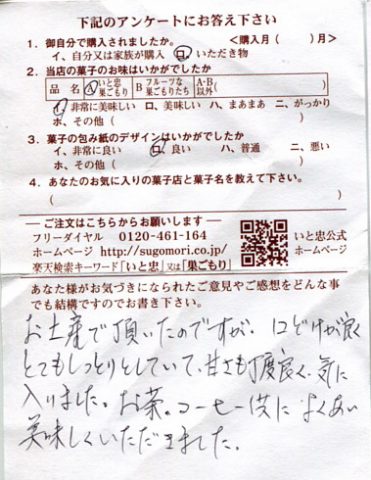 下記のアンケートにお答え下さい
1. 御自分で購入されましたか。 <購入月(　　)月>
イ、自分又は家族が購入 ロ、いただき物
2. 当店の菓子のお味はいかがでしたか
品 名 A いと忠巣ごもり B フルーツな巣ごもりたち A・B以外(　　)
イ、非常に美味しい ロ、美味しい ハ、まあまあ ニ、がっかり
ホ、その他(　　)
3. 菓子の包み紙のデザインはいかがでしたか
イ、非常に良い ロ、良い ハ、普通 ニ、悪い
ホ、その他(　　)
4. あなたのお気に入りの菓子店と菓子名を教えて下さい。
(　　)
ご注文はこちらからお願いします
フリーダイヤル 0120-461-164
ホームページ http://sugomori.co.jp/
楽天検索キーワード「いと忠」又は「巣ごもり」
いと忠公式
ホームページ
あなた様がお気づきになられたご意見やご感想をどんな事
でも結構ですのでお書き下さい。
お土産で頂いたのですが、口どけが良く
とてもしっとりとしていて、甘さも丁度良く、気に
入りました。お茶。コーヒー共によくあい
美味しくいただきました。